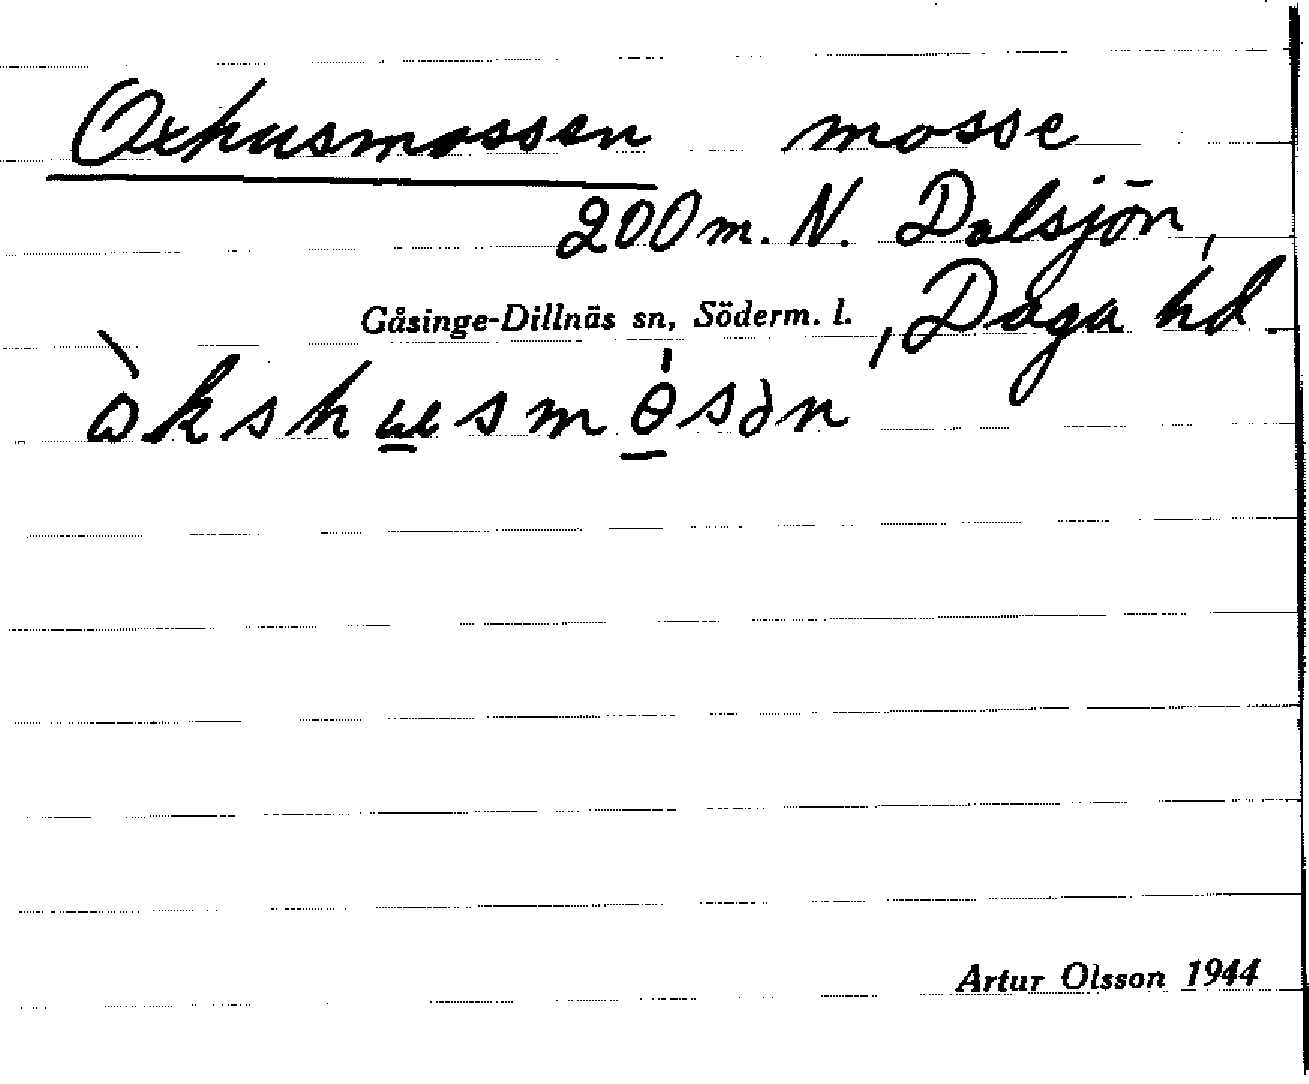 Oxhusmossen mosse
200 m. N. Dalsjön,
Gåsinge-Dillnäs sn, Söderm. l., Daga hd.
Artur Olsson 1944